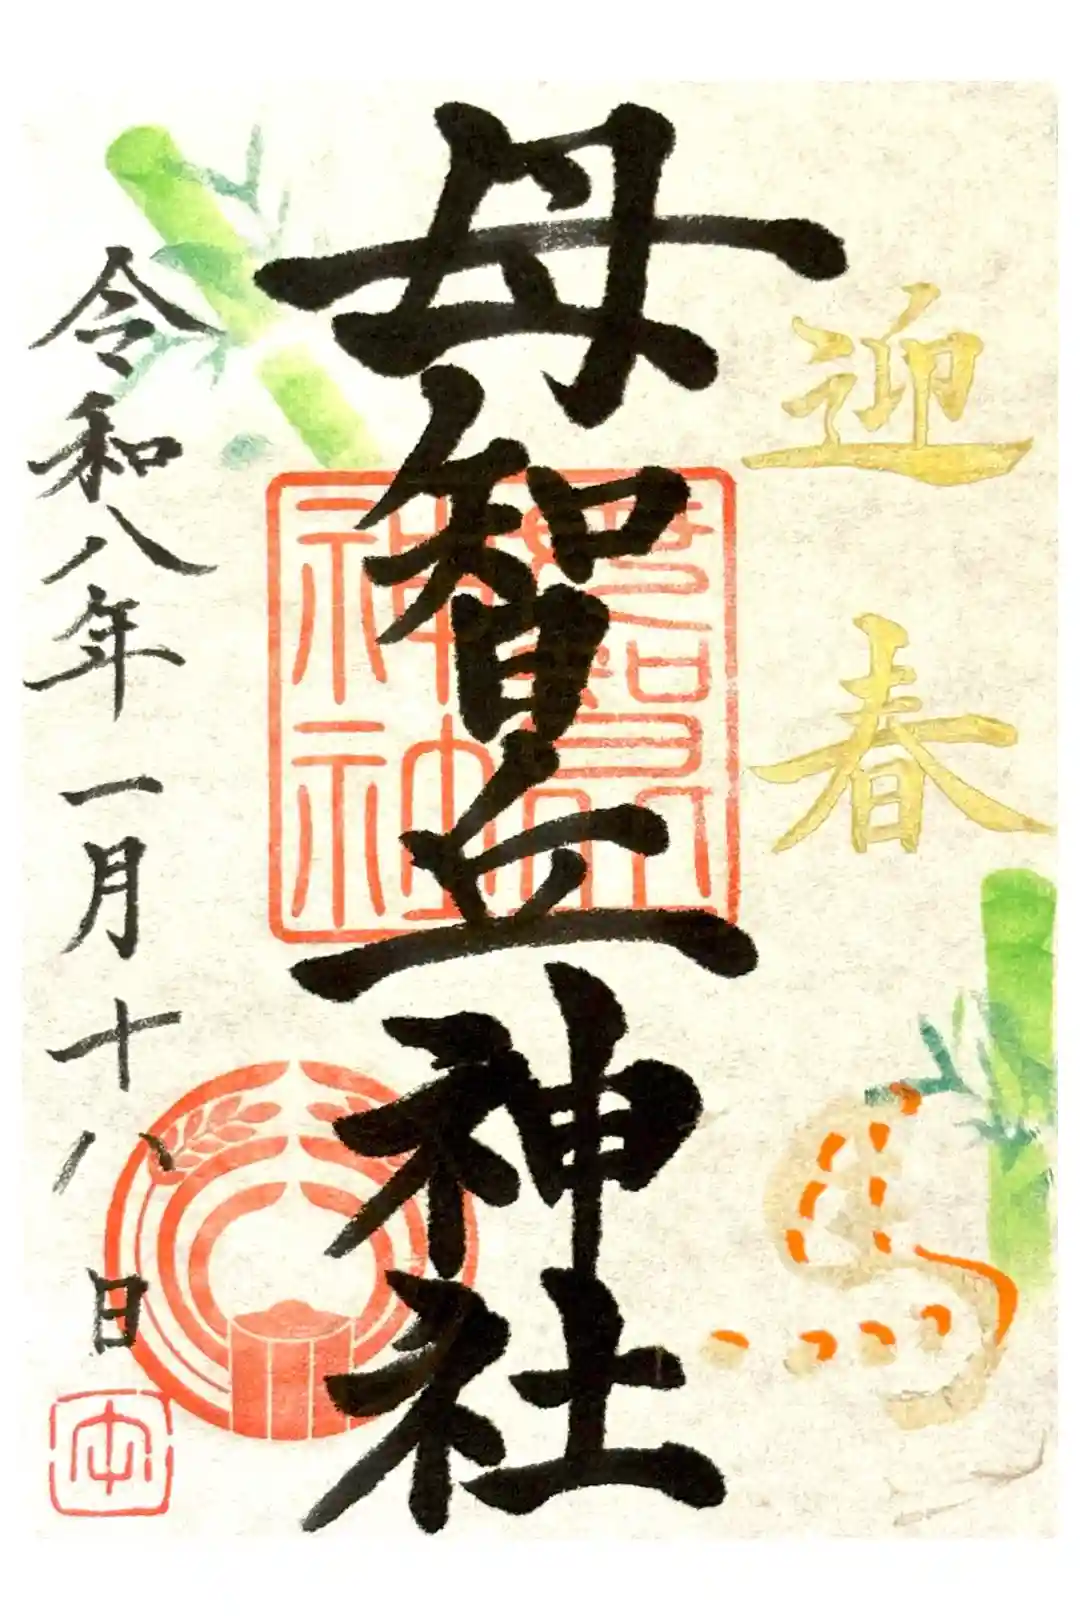 迎春
馬
母智丘神社
母智丘
神社
令和八年一月十八日